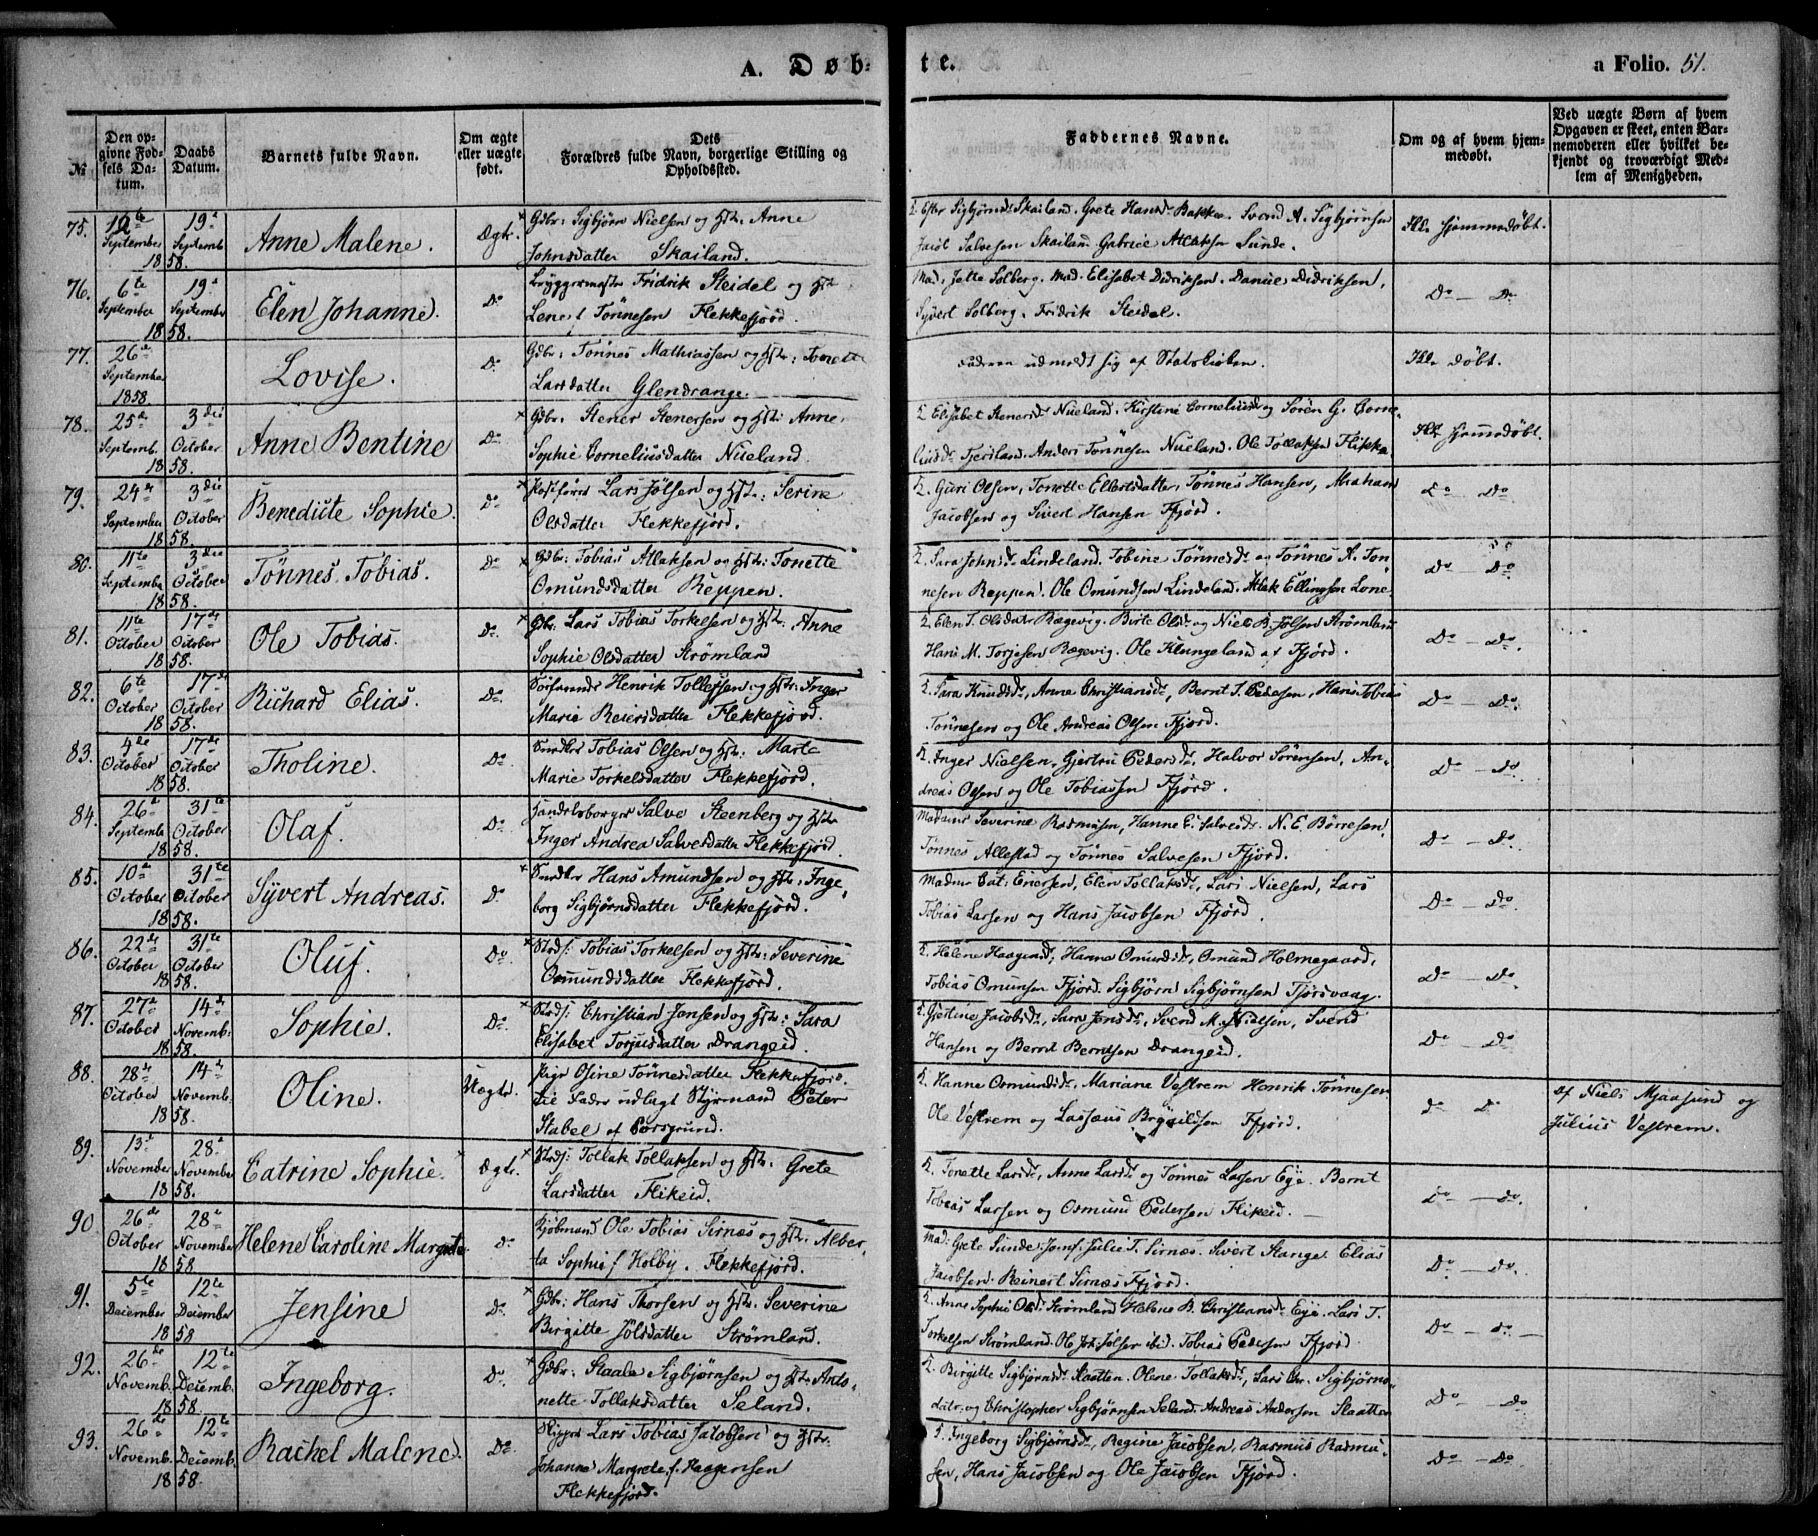 A. Døb-
te.
a Folio. 51.
№
Den op-
givne Fød-
sels Da-
tum.
Daabs
Datum.
Barnets fulde Navn.
Om ægte
eller uægte
født.
Dets
Forældres fulde Navn, borgerlige Stilling og
Opholdssted.
Faddernes Navne.
Om og af hvem hjem-
medøbt.
Ved uægte Børn af hvem
Opgaven er skeet, enten Bar-
nemoderen eller hvilket be-
kjendt og troværdigt Med-
lem af Menigheden.
75. September 1858. 19de September
Anne Malene.
Ægte.
Gdbr: Sigbjørn Nielsen og Hst. Anne
Johnsdatter Skailand.
Skailand. Grete Hansd. Bakke. Svend A. Sigbjørnsen
Jacob Salvesen Skailand. Gabriel Atlaksen Sunde.
Ikke Hjemmedøbt.
76. 6te September 1858. 19de September
Elen Johanne.
Do
Fridrik Steidel og Hst.
Lene f. Tönnesen Flekkefjord.
Mad. Jette Solberg. Mad. Elisabet Didriksen. Daniel Didriksen,
Syvert Solberg. Fridrik Steidel.
Do — Do
77. 26de September 1858.
Lovise.
Do
Gdbr: Tönnes Mathiassen og Hst: Tonette
Larsdatter Glendrange.
Faderen udmeldt sig af Statskirken.
Ikke døbt.
78. 25de Septemb. 1858. 3die October
Anne Bentine
Do
Gdbr. Stener Stenersen og Hst: Anne
Sophie Corneliusdatter Nueland.
Elisabet Stenersd. Nueland. Kirstine Corneliusd. og Sören G. Corne-
liusd. Fjersland. Anders Tönnesen Nueland. Ole Tollaksen Flikka.
Ikke Hjemmedøbt.
79. 24de September 1858. 3die October
Benedicte Sophie.
Do
Lars Jølsen og Hst: Serine
Olsdatter Flekkefjord.
Guri Olsen, Tonette Ellertsdatter, Tönnes Hansen, Abraham
Jacobsen og Sivert Hansen Ffjord.
Do Do
80. 11te September 1858. 3die October
Tönnes Tobias.
Do
Gdbr: Tobias Atlaksen og Hst: Tonette
Omundsdatter Reppen.
Sara Johnsd. Lindeland. Tobine Tönnesd. og Tönnes A. Tön-
nesen Reppen. Ole Omundsen Lindeland. Atlak Ellingsen Lone.
Do Do
81. 11te October 1858. 17de October
Ole Tobias.
Do
Gdbr. Lars Tobias Torkelsen og Hst. Anne
Sophie Olsdatter Strömland
Elen T. Olsdatr Rægevig. Birte Olsd. og Niels B. Jølsen Strømland
Hans M. Torjesen Rægevig. Ole Klungeland af Ffjord.
Do — Do
82. 6te October 1858. 17de October
Richard Elias.
Do
Henrik Tollefsen og Hst: Inger
Marie Reiersdatter Flekkefjord.
Sara Knudsd., Anne Christiansd., Bernt T. Pedersen, Hans Tobias
Tönnesen og Ole Andreas Olsen Ffjord.
Do — Do
83. 4de October 1858. 17de October
Tholine.
Do
Tobias Olsen og Hst. Marte
Marie Torkelsdatter Flekkefjord.
Inger Nielsen, Gjertru Pedersd., Halvor Sörensen, An-
dreas Olsen og Ole Tobiassen Ffjord.
Do — Do
84. 26de September 1858. 31te October
Olaf.
Do
Handelsborger Salve Steenberg og Hst.
Inger Andrea Salvesdatter Flekkefjord.
Severine Rasmusen, Hanne E. Salvesd. N. E. Börresen,
Tönnes Allestad og Tönnes Salvesen Ffjord.
Do — Do
85. 10de October 1858. 31te October
Syvert Andreas.
Do
Hans Amundsen og Hst: Inge-
borg Sigbjørnsdatter Flekkefjord.
Enersen, Elen Tollaksd., Lars Nielsen, Lars
Tobias Larsen og Hans Jacobsen Ffjord.
Do — Do
86. 22de October 1858. 31te October
Oluf.
Do
Tobias Torkelsen og Hst: Severine
Osmundsdatter Flekkefjord.
Helene Haagensd., Hanna Omundsd., Omund Holmegaard,
Tobias Omunsen Ffjord. Sigbjørn Sigbjørnsen Tjörsvaag.
Do — Do
87. 27de October 1858. 14de Novemb:
Sophie.
Do
Christian Jensen og Hst: Sara
Elisabet Torjusdatter Drangeid.
Gjertine Jacobsd., Sara Jensd., Svend M. Nielsen, Svend
Hansen og Bernt Berntsen Drangeid.
Do — Do
88. 28de October 1858. 14de Novemb.
Oline.
Uægte.
Pige Osine Tönnesdatter Flekkefjord.
Fader udlagt Styrmand Peter
Stabel af Porsgrund.
Hanne Osmundsd., Mariane Vestrem Henrik Tönnesen
Ole Vestrem og Lassæus Ffjord.
Do Do
af Niels Mjaasund og
Julius Vestrem.
89. 13de November 1858. 28de November
Catrine Sophie.
Ægte.
Tollak Tollaksen og Hst: Grete
Larsdatter Flikeid.
Tonette Larsd., Anne Larsd. og Tönnes Larsen Eye. Bernt
Tobias Larsen og Osmund Pedersen Flikeid.
Do — Do
90. 26de October 1858. 28de November
Helene Caroline Margrete
Do
Kjöbmand Ole Tobias Sirnæs og Hst. Alber-
ta Sophie f. Holby. Flekkefjord.
Mad: Grete Sunde. Jomf. Julie T. Sirnæs. Sivert Stange. Elias
Jacobsen. Reinert Sirnæs Ffjord.
Do — Do.
91. 5te December 1858. 12te December
Jensine
Do
Gdbr: Hans Thorsen og Hst: Severine
Birgitte Jølsdatter Strömland.
Anne Sophie Olsd. Strömland Helene B. Christiansd. Eye. Lars T.
Torkelsen Strömland. Ole Joh. Jölsen ibid. Tobias Pedersen Ffjord
Do — Do
92. 26de Novemb. 1858. 12te Decemb.
Ingeborg.
Do
Gdbr: Staale Sigbjørnsen og Hst. Anto-
nette Tollaksdatter Seland.
Birgitte Sigbjørnsd. Slaatten. Olene Tollaksd., Lars Chr. Sigbjørns-
datr. og Christopher Sigbjørnsen Seland. Andreas Andersen Slaatten
Do — Do
93. 26de Novemb. 1858. 12te Decemb.
Rachel Malene.
Do
Skipper Lars Tobias Jacobsen og Hst.
Johanne Margrete f. Haagensen
Flekkefjord.
Ingeborg Sigbjørnsd., Regine Jacobsen, Rasmus Rasmu-
sen, Hans Jacobsen og Ole Jacobsen Ffjord.
Do — Do